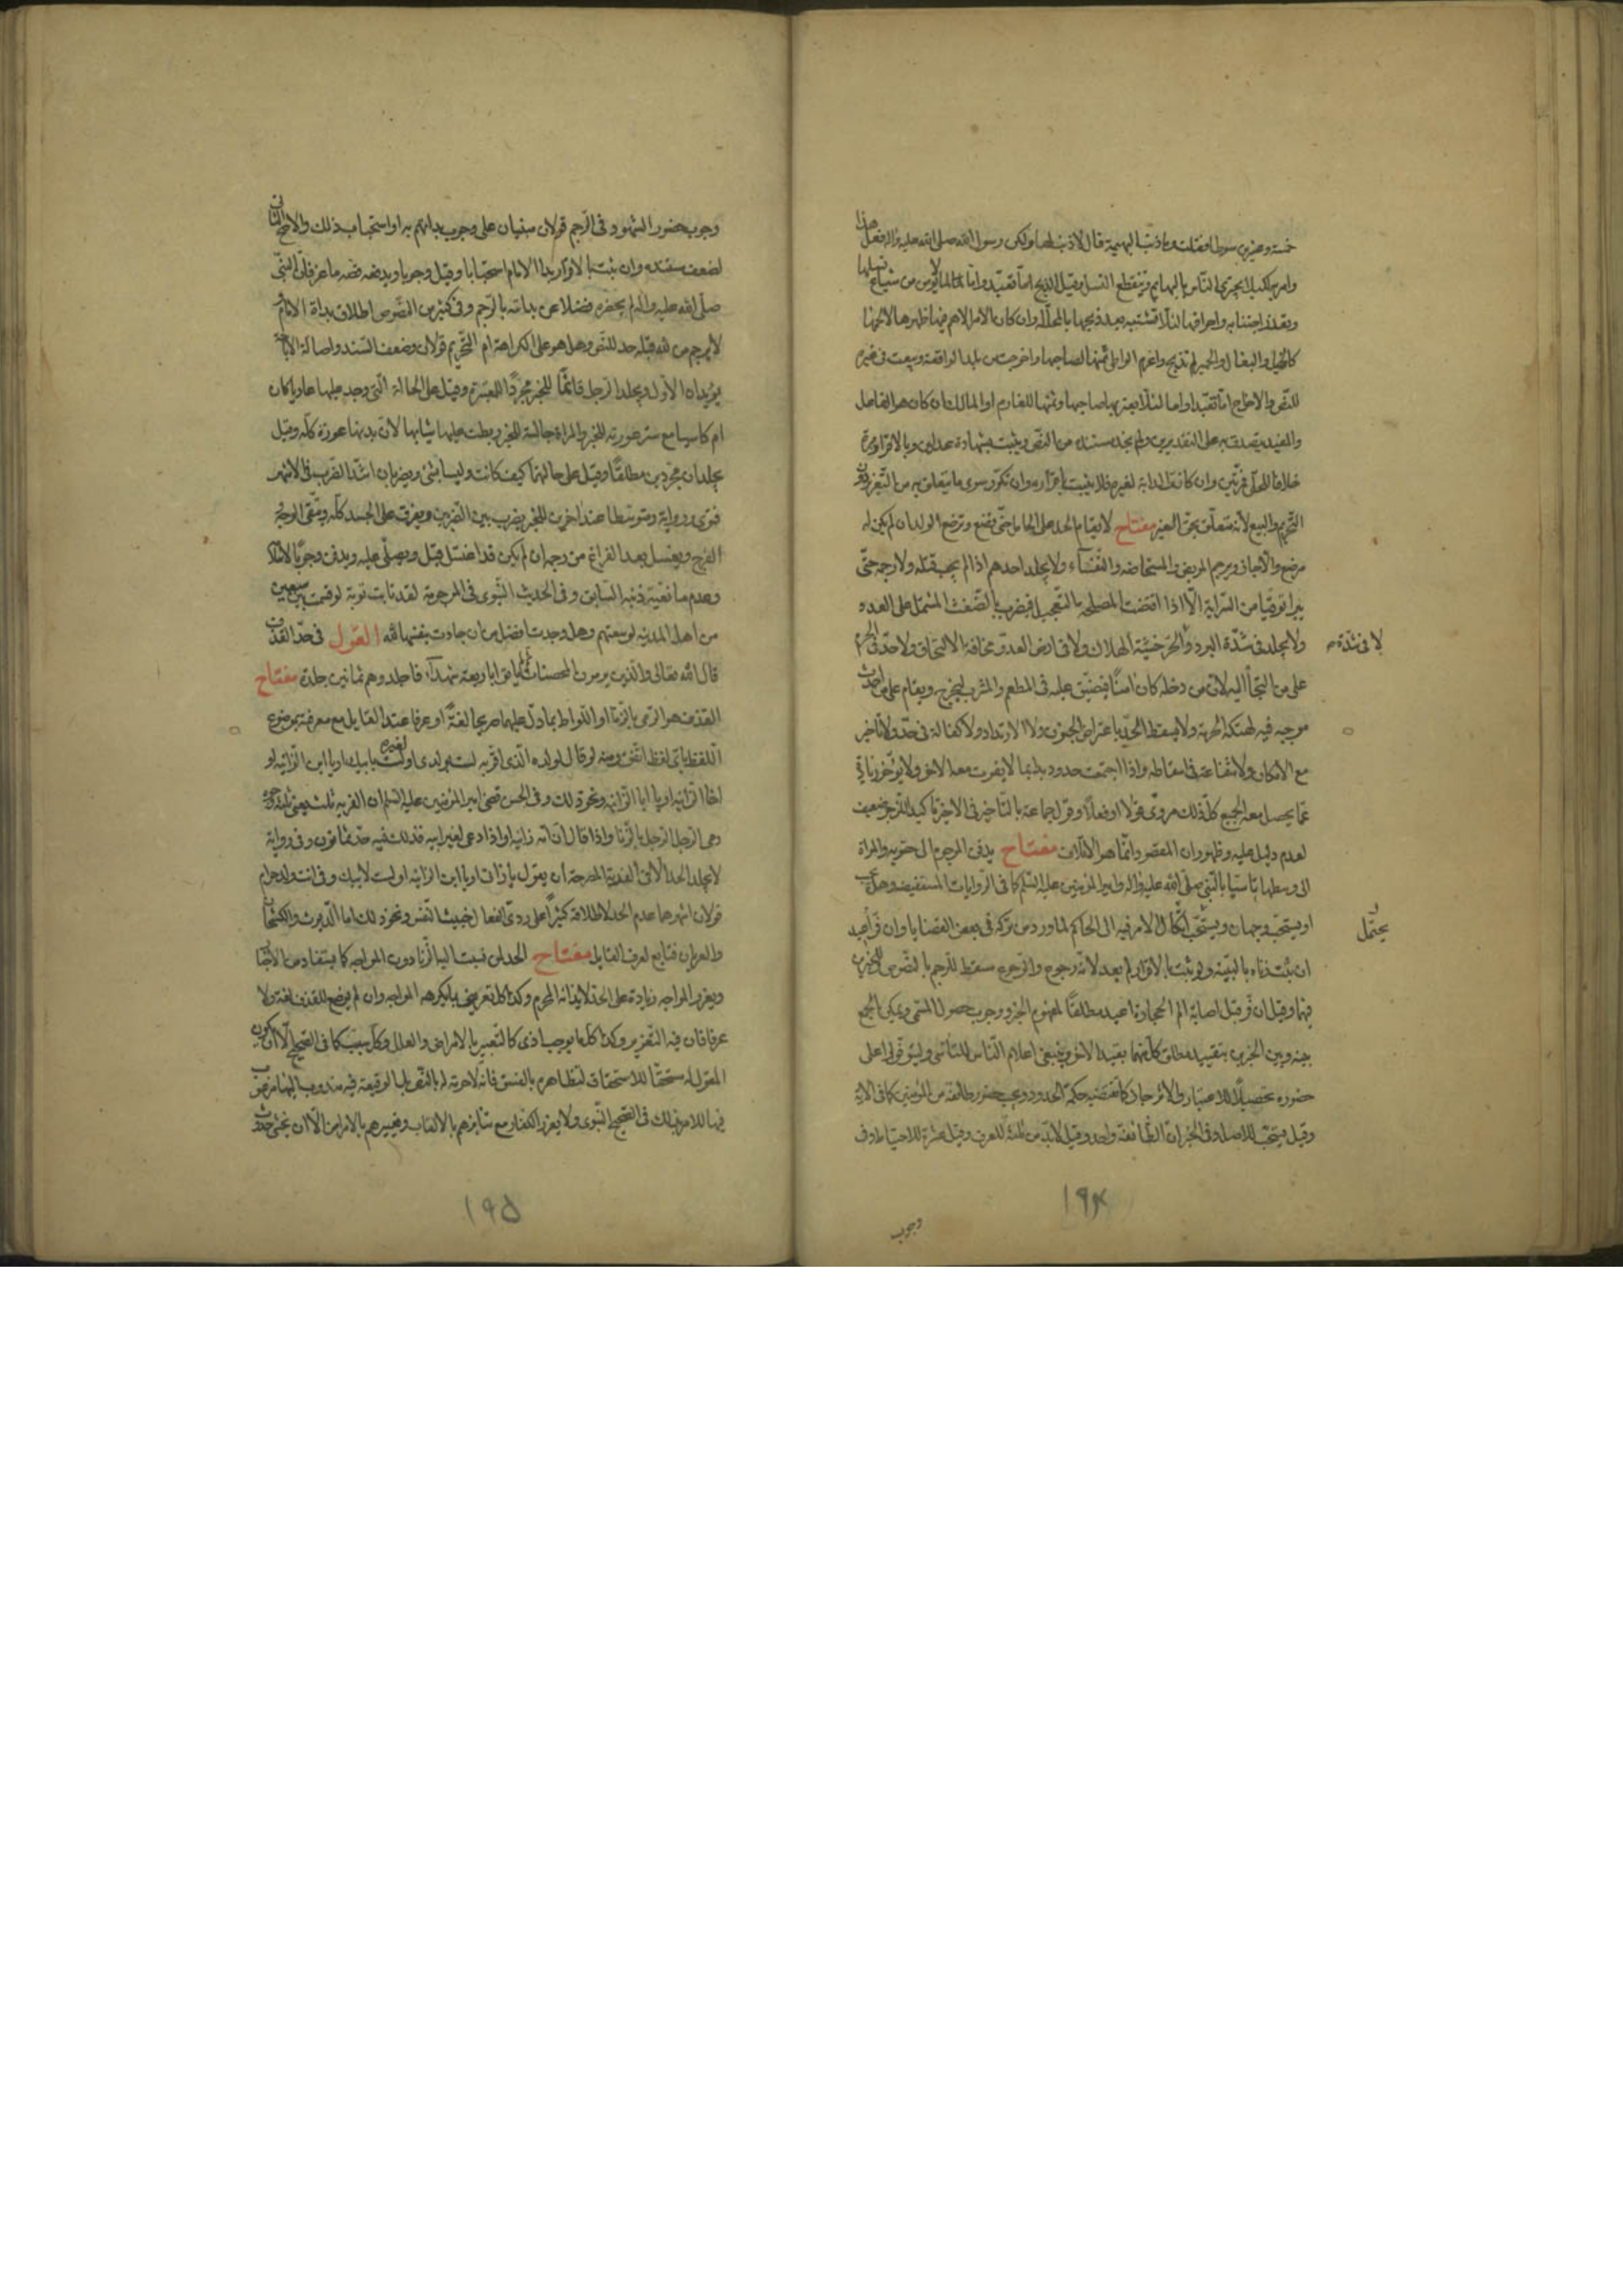 خمسة وعشرين سوطا وقلت وما ذنب البهيمة قال لا ذنب لها ولكن رسول الله صلى الله عليه واله فعل هذا
وامر به لكيلا يجترى الناس بالبهايم وينقطع النسل وقيل الذبح اما تعبد واما لما لا يؤمن من شياع نسلها
وتعذر اجتنابه واحراقها لئلا تشتبه بعد ذبحها بالمحللة وان كان الامر الاهم فيها ظهرها لا لحمها
كالخيل والبغال والحمير لم تذبح واغرم الواطى ثمنها لصاحبها واخرجت من بلد الواقعة وبيعت فى غيره
للنص والاخراج اما تعبد او اما لئلا يعير بها صاحبها وثمنها للغارم او المالك ان كان هو الفاعل
والمفيد يتصدق به على التقديرين ولم نجد مستنده من النص ويثبت بشهادة عدلين وبالاقرار مرة
خلافا للحلى فمرتين وان كانت الدابة لغيره فلا يثبت باقراره وان تكرر سوى ما يتعلق به من التعزير دون
التحريم والبيع لانه متعلق بحق الغير مفتاح لا يقام الحد على الحامل حتى تضع وترضع الولد ان لم يكن له
مرضع والا جاز ويرجم المريض والمستحاضه والنفساء ولا يجلد احدهم اذا لم يجب قتله ولا رجمه حتى
يبرا توقيا من السراية الا اذا اقتضت المصلحة بالتعجيل فيضرب بالضغث المشتمل على العدد
ولا يجلد فى شدة البرد والحر خشية الهلاك ولا فى ارض العدو مخافة الالتحاق ولا حد فى الحرم
لا فى شدة
على من التجأ اليه لان من دخله كان امنا فيضيق عليه فى المطعم والمشرب ليخرج ويقام على من احدث
موجبه فيه لهتكه الحرمة ولا يسقط الحد باعتراض الجنون ولا الارتداد ولا كفالة فى حد ولا تاخير
مع الامكان ولا شفاعة فى اسقاطه واذا اجتمعت حدود بدئ بما لا يفوت معه الاخر ولا يؤخر زيادة
عما يحصل معه الجميع كل ذلك مروى قولا او فعلا وقول جماعة بالتاخير فى الاخير تاكيدا للزجر ضعيف
لعدم دليل عليه وظهور ان المقصود انما هو الاتلاف مفتاح يدفن المرجوم الى حقويه والمراة
الى وسطها تاسيا بالنبى صلى الله عليه واله وامير المؤمنين عليه السلم كما فى الروايات المستفيضة وهل يجب
او يستحب وجهان ويستحب ايكال الامر فيه الى الحاكم لما ورد من تركه فى بعض القضايا وان فر اعيد
يحتمل
ان ثبت زناه بالبينة ولو ثبت بالاقرار لم يعد لانه رجوع والرجوع مسقط للرجم بالنصوص للخبرين
فيها وقيل ان فر قبل اصابة الم الحجارة اعيد مطلقا لمفهوم الخبر ووجوب حصول المسمى ويمكن الجمع
بينه وبين الخبرين بتقييد مطلق كل منهما بقيد الاخر وينبغى اعلام الناس للتاسى وليتوفروا على
حضوره تحصيلا للاعتبار والانزجار كما تقتضيه حكمة الحدود ويجب حضور طائفة من المؤمنين كما فى الاية
وقيل يستحب للاصل وفى الخبر ان الطائفة واحد وقيل لا بد من ثلثة للعرف وقيل عشرة للاحتياط وفى
١٩٤
وجوب
وجوب حضور الشهود فى الرجم قولان مبنيان على وجوب بداتهم به او استحباب ذلك والاصح الثانى
لضعف سنده وان ثبت بالاقرار بدا الامام استحبابا وقيل وجوبا ويدفعه قصه ماعز فان النبى
صلى الله عليه واله لم يحضره فضلا عن بداته بالرجم وفى كثير من النصوص اطلاق بداة الامام
لا يرجم من لله قبله حد للنص وهل هو على الكراهة ام التحريم قولان وضعف السند واصالة الاباحة
يؤيدان الاول ويجلد الرجل قائما للخبر مجردا للمعتبرة وقيل على الحالة التى وجد عليها عاريا كان
ام كاسيا مع ستر عورته للخبر والمراة جالسة للخبر وربطت عليها ثيابها لان بدنها عورة كله وقيل
يجلدان مجردين مطلقا وقيل على حالتهما كيف كانت وليسا بشئ ويضربان اشد الضرب فى الاشهر
فتوى ورواية ومتوسطا عند اخرين للخبر يضرب بين الضربين ويفرق على الجسد كله ويتقى الوجه
الفرج ويغسل بعد الفراغ من رجمه ان لم يكن قد اغتسل قبل ويصلى عليه ويدفن وجوبا لاسلامه
وعدم مانعية ذنبه السابق وفى الحديث النبوى فى المرجومة لقد تابت توبة لو قسمت بين سبعين
من اهل المدينه لوسعتهم وهل وجدت افضل من ان جادت بنفسها لله القول فى حد القذف
قال الله تعالى والذين يرمون المحصنات ثم لم ياتوا باربعة شهداء فاجلدوهم ثمانين جلدة مفتاح
القذف هو الرمى بالزنا او اللواط بما دل عليهما صريحا لغة او عرفا عند القايل مع معرفته بموضوع
اللفظ باى لفظ اتفق ومنه لو قال لولده الذى اقر به لست بولدى او لغيره لست بابيك او يا ابن الزانيه او
اخا الزانيه او يا ابا الزانيه ونحو ذلك وفى الحسن قضى امير المؤمنين عليه السلم ان الفريه ثلث يعنى ثلثة وجوه
رمى الرجل الرجل بالزنا واذا قال ان امه زانيه واذا دعى لغير ابيه فذلك فيه حد ثمانون وفى رواية
لا يجلد الحد الا فى الفرية المصرحة ان يقول يا زانى او يا ابن الزانيه او لست لابيك وفى انت ولد حرام
قولان اشهرهما عدم الحد لاطلاقه كثيرا على ردى الفعال خبيث النفس ونحو ذلك اما الديوث والكشخان
والقرنان فتابع لعرف القايل مفتاح الحد لمن نسبت اليه الزنا دون المواجه كما يستفاد من الاخبار
ويعزر المواجه زيادة على الحد لايذائه المحرم وكذا كل تعريض بما يكرهه المواجه وان لم يوضع للقذف لغة ولا
عرفا فان فيه التعزير وكذا كل ما يوجب اذى كالتعيير بالامراض والعلل وكل سبب كما فى الصحيح الا ان يكون
المقول له مستحقا للاستخفاف لتظاهره بالفسق فانه لا حرمة له بالنص بل الوقيعة فيه مندوب اليها مرغوب
فيها للامر بذلك فى الصحيح النبوى ولا يعزر الكفار مع تنابزهم بالالقاب وتعييرهم بالامراض الا ان يخشى حدوث
١٩٥